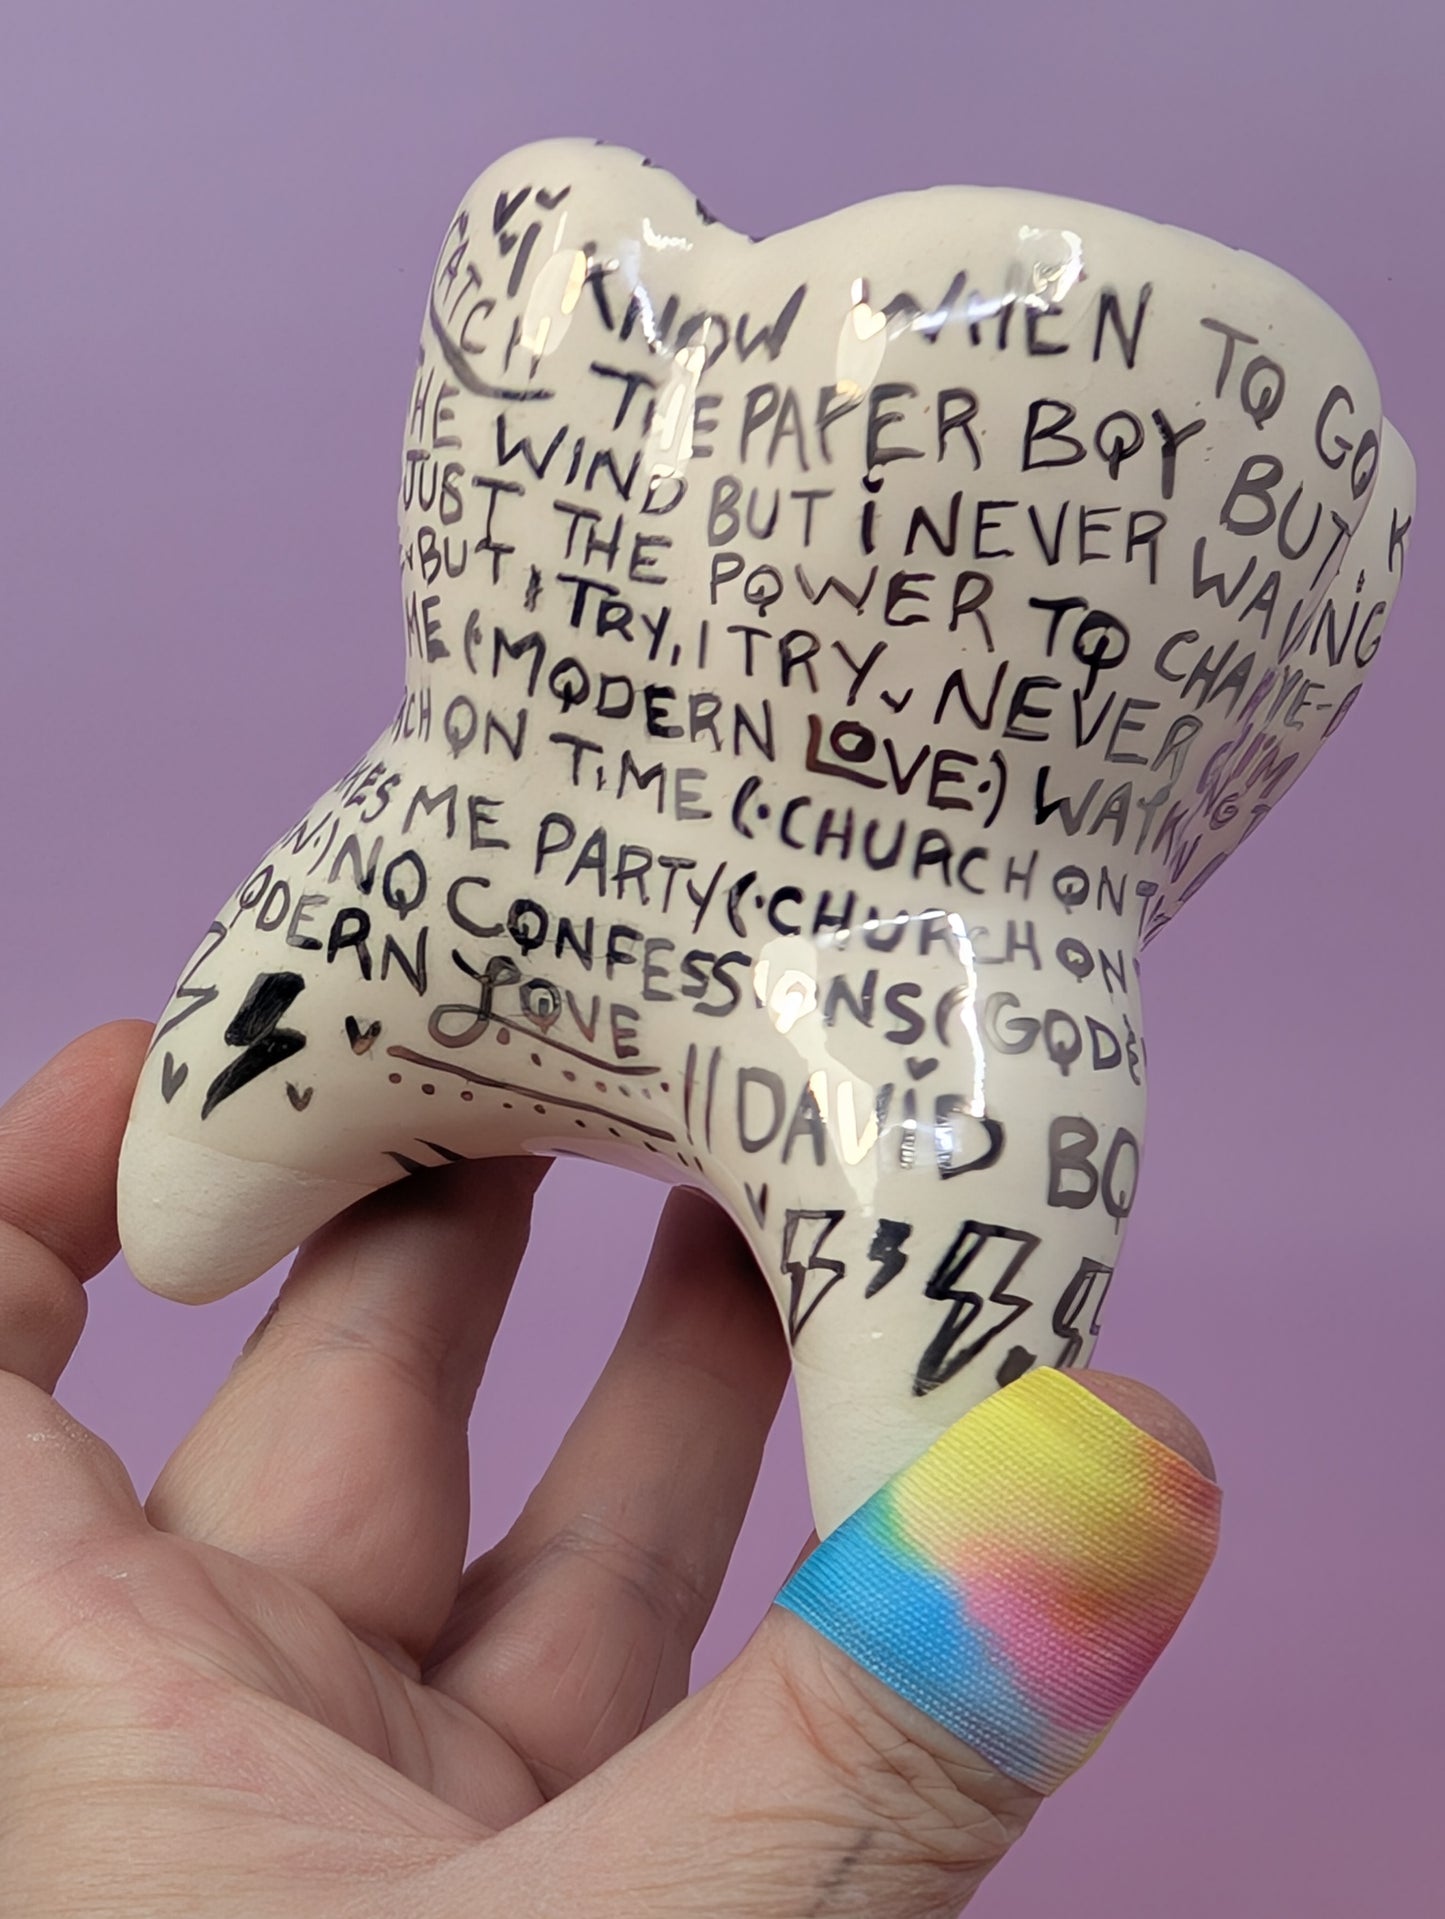 CATCH
I KNOW WHEN TO GO
THE PAPER BOY BUT I K
HE WIND BUT i NEVER WAVING
JUST THE POWER TO CHA
BUT I TRY, I TRY NEVER
ME (MODERN LOVE) WALK
ON TIME (CHURCH ON T
KES ME PARTY (CHURCH ON
N) NO CONFESSIONS (GOD &
ODERN LOVE
DAVID BO